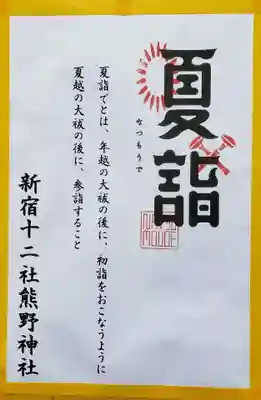 夏詣
なつもうで
夏詣でとは、年越の大祓の後に、初詣をおこなうように
夏越の大祓の後に、参詣すること
新宿十二社熊野神社